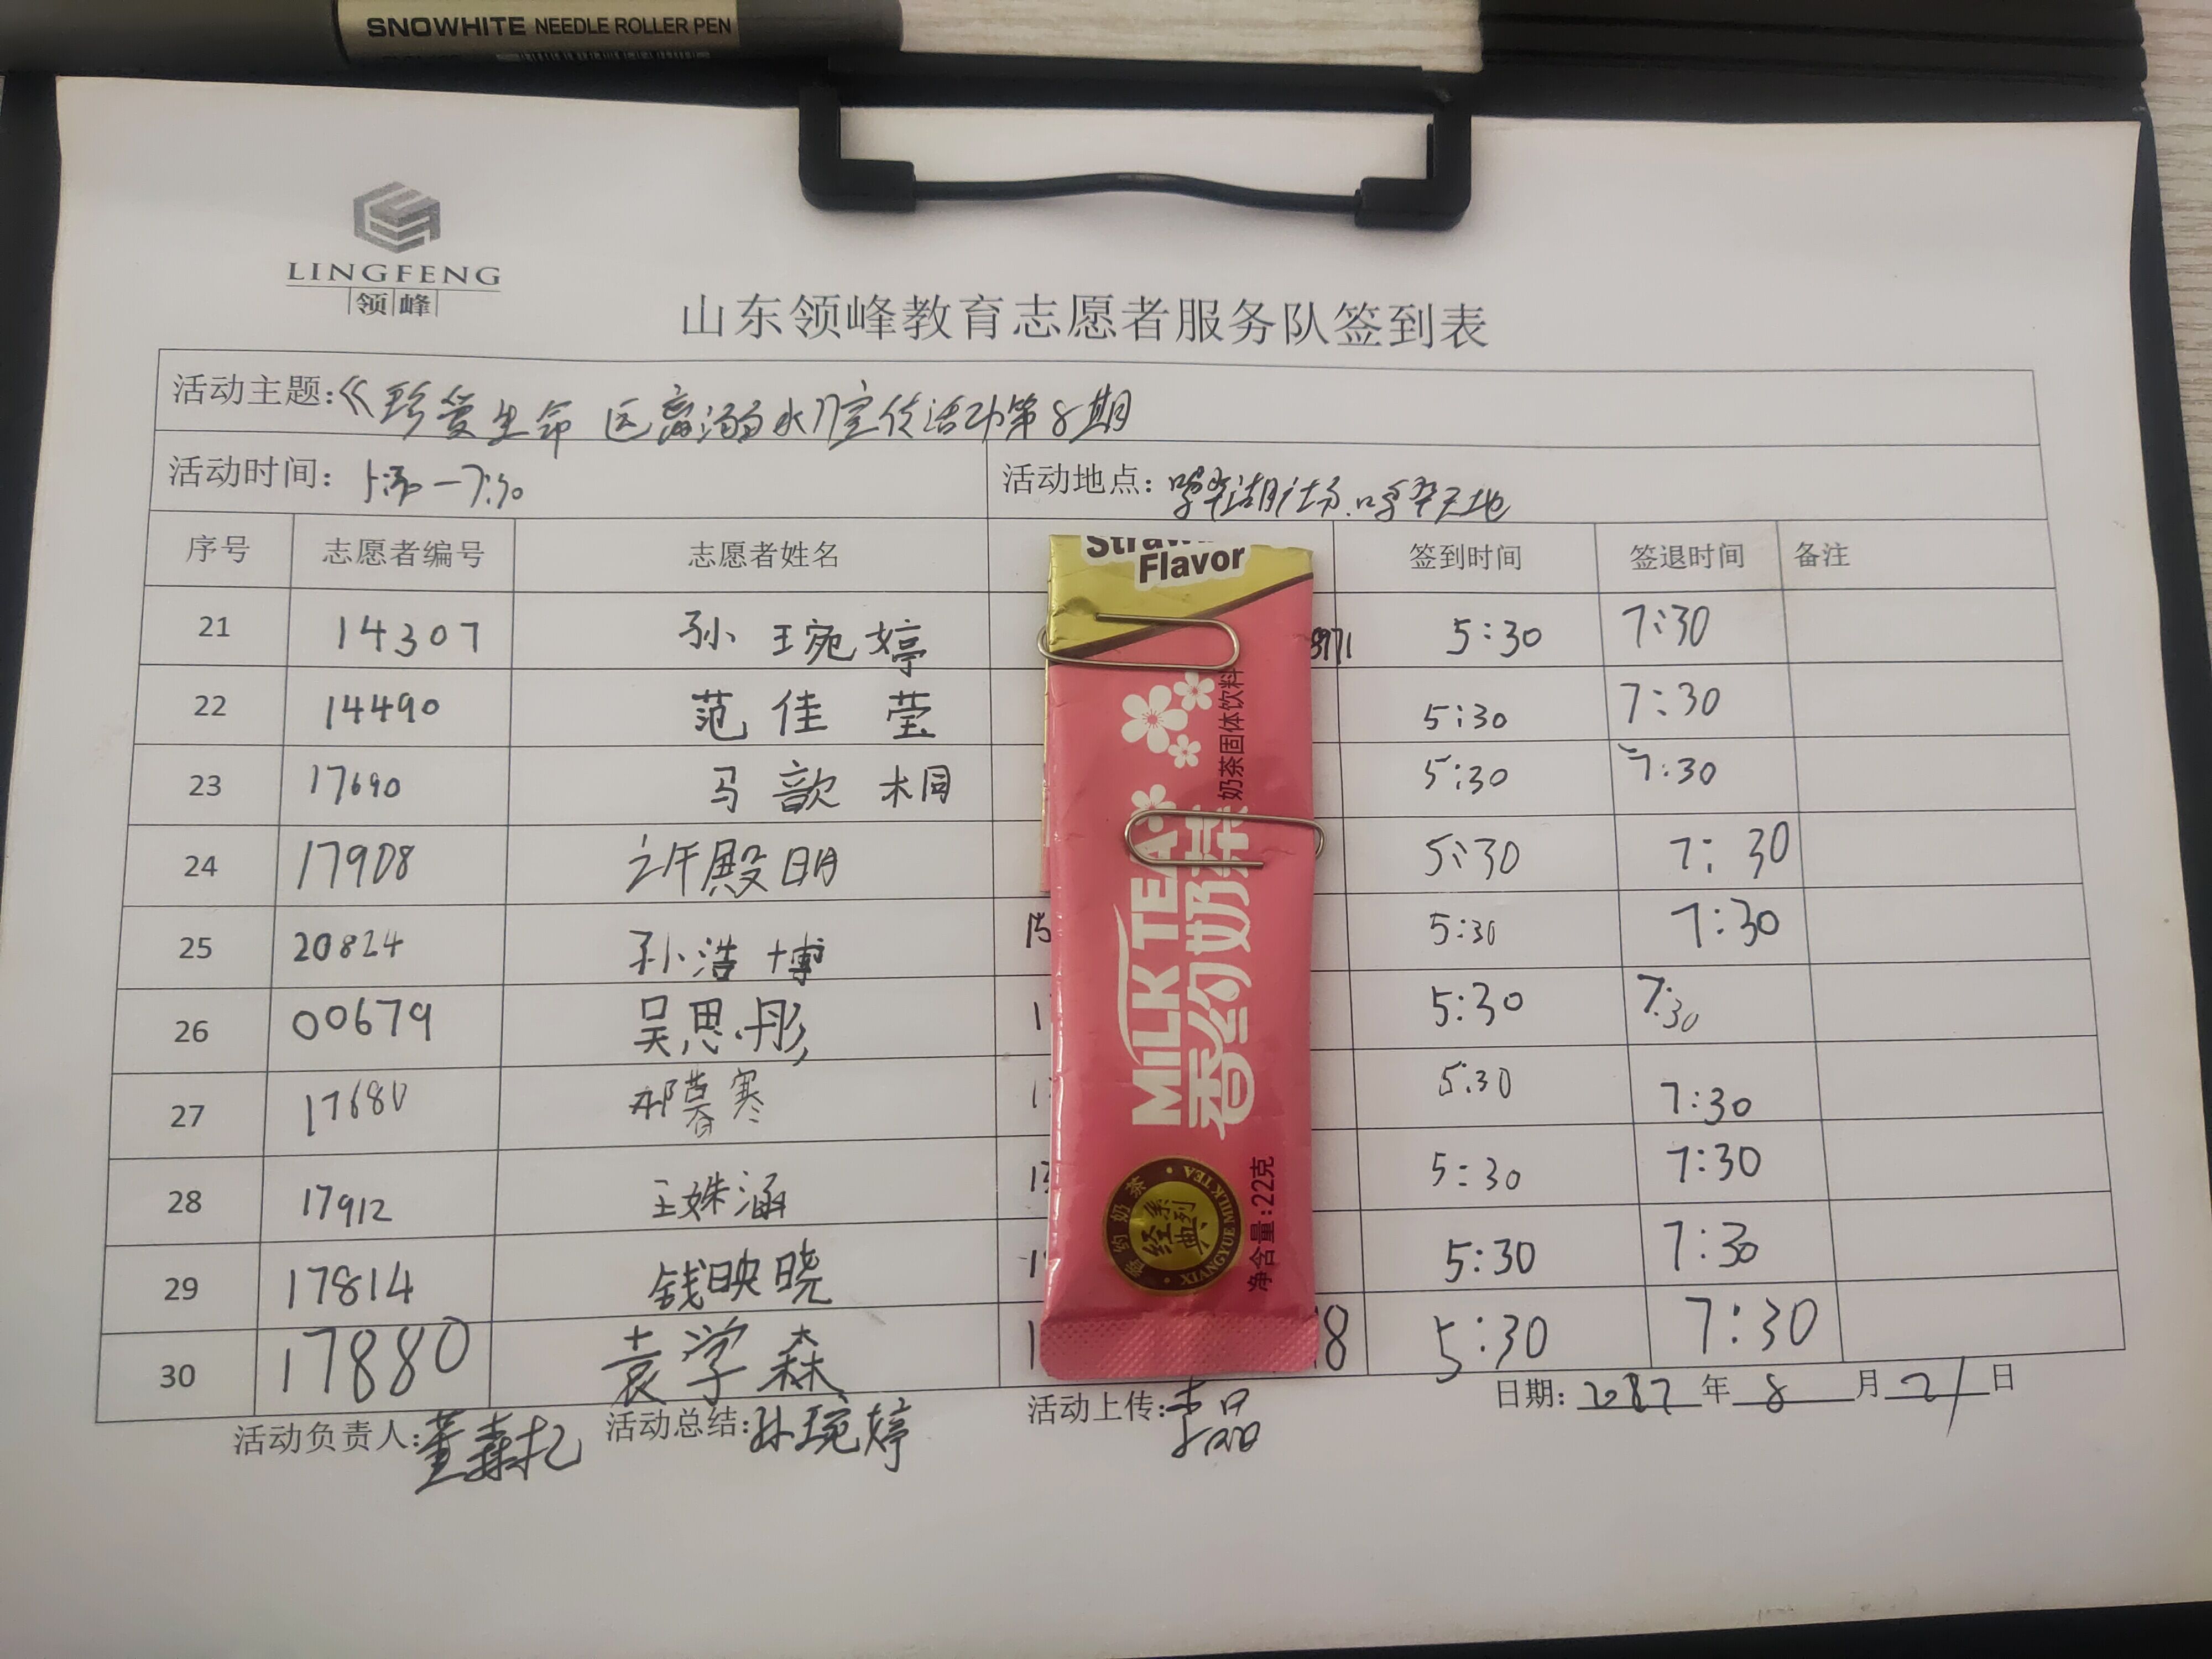 SNOWHITE NEEDLE ROLLER PEN
LINGFENG
领峰
山东领峰教育志愿者服务队签到表
活动主题:《珍爱生命 远离溺水》宣传活动第8期
活动时间: 5:30—7:30 活动地点:
序号 志愿者编号 志愿者姓名 签到时间 签退时间 备注
21 14307 孙琬婷 8971 5:30 7:30
22 14490 范佳莹 5:30 7:30
23 17690 马歆桐 5:30 7:30
24 17908 许殿明 5:30 7:30
25 20824 孙浩博 15 5:30 7:30
26 00679 吴思彤 1 5:30 7:30
27 17680 祁暮寒 1 5:30 7:30
28 17912 王姝涵 5:30 7:30
29 17814 钱映晓 1 5:30 7:30
30 17880 袁学森 1 8 5:30 7:30
活动负责人: 活动总结:孙琬婷 活动上传: 日期: 年 8 月 21 日
Flavor
奶茶固体饮料
MILK TEA
香约奶茶
经典系列
香约奶茶 XIANGYUE MILK TEA
净含量:22克